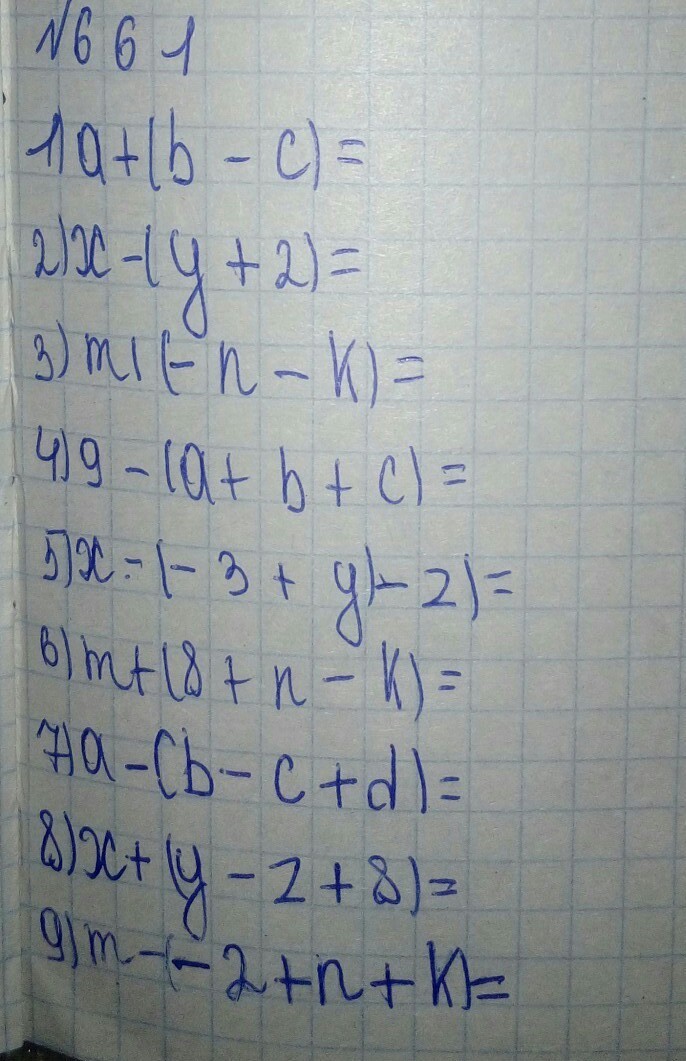 №661
1) a+(b - c)=
2) x-(y+2)=
3) m+(-n-k)=
4) 9-(a+b+c)=
5) x-(-3+y)-z)=
6) m+(8+n-k)=
7) a-(b-c+d)=
8) x+(y-z+8)=
9) m-(-2+n+k)=